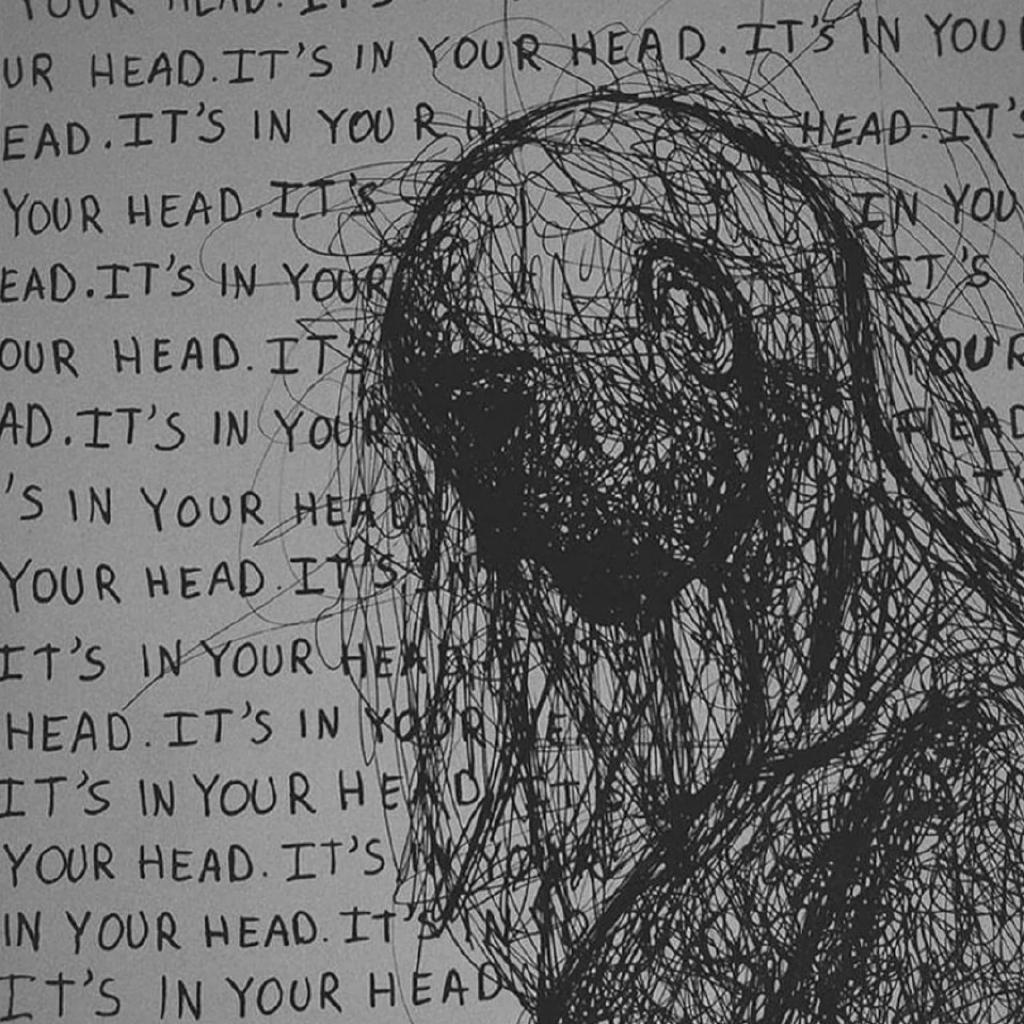 YOUR HEAD. IT'S
UR HEAD. IT'S IN YOUR HEAD. IT'S IN YOU
EAD. IT'S IN YOUR H HEAD. IT'S
YOUR HEAD. IT'S IN YOU
EAD. IT'S IN YOUR IT'S
OUR HEAD. IT'S YOUR
AD. IT'S IN YOUR HEAD
'S IN YOUR HEAD IT'
YOUR HEAD. IT'S IN
IT'S IN YOUR HEAD
HEAD. IT'S IN YOUR HEAD
IT'S IN YOUR HEAD IT'S
YOUR HEAD. IT'S IN YOUR
IN YOUR HEAD. IT'S IN YO
IT'S IN YOUR HEAD